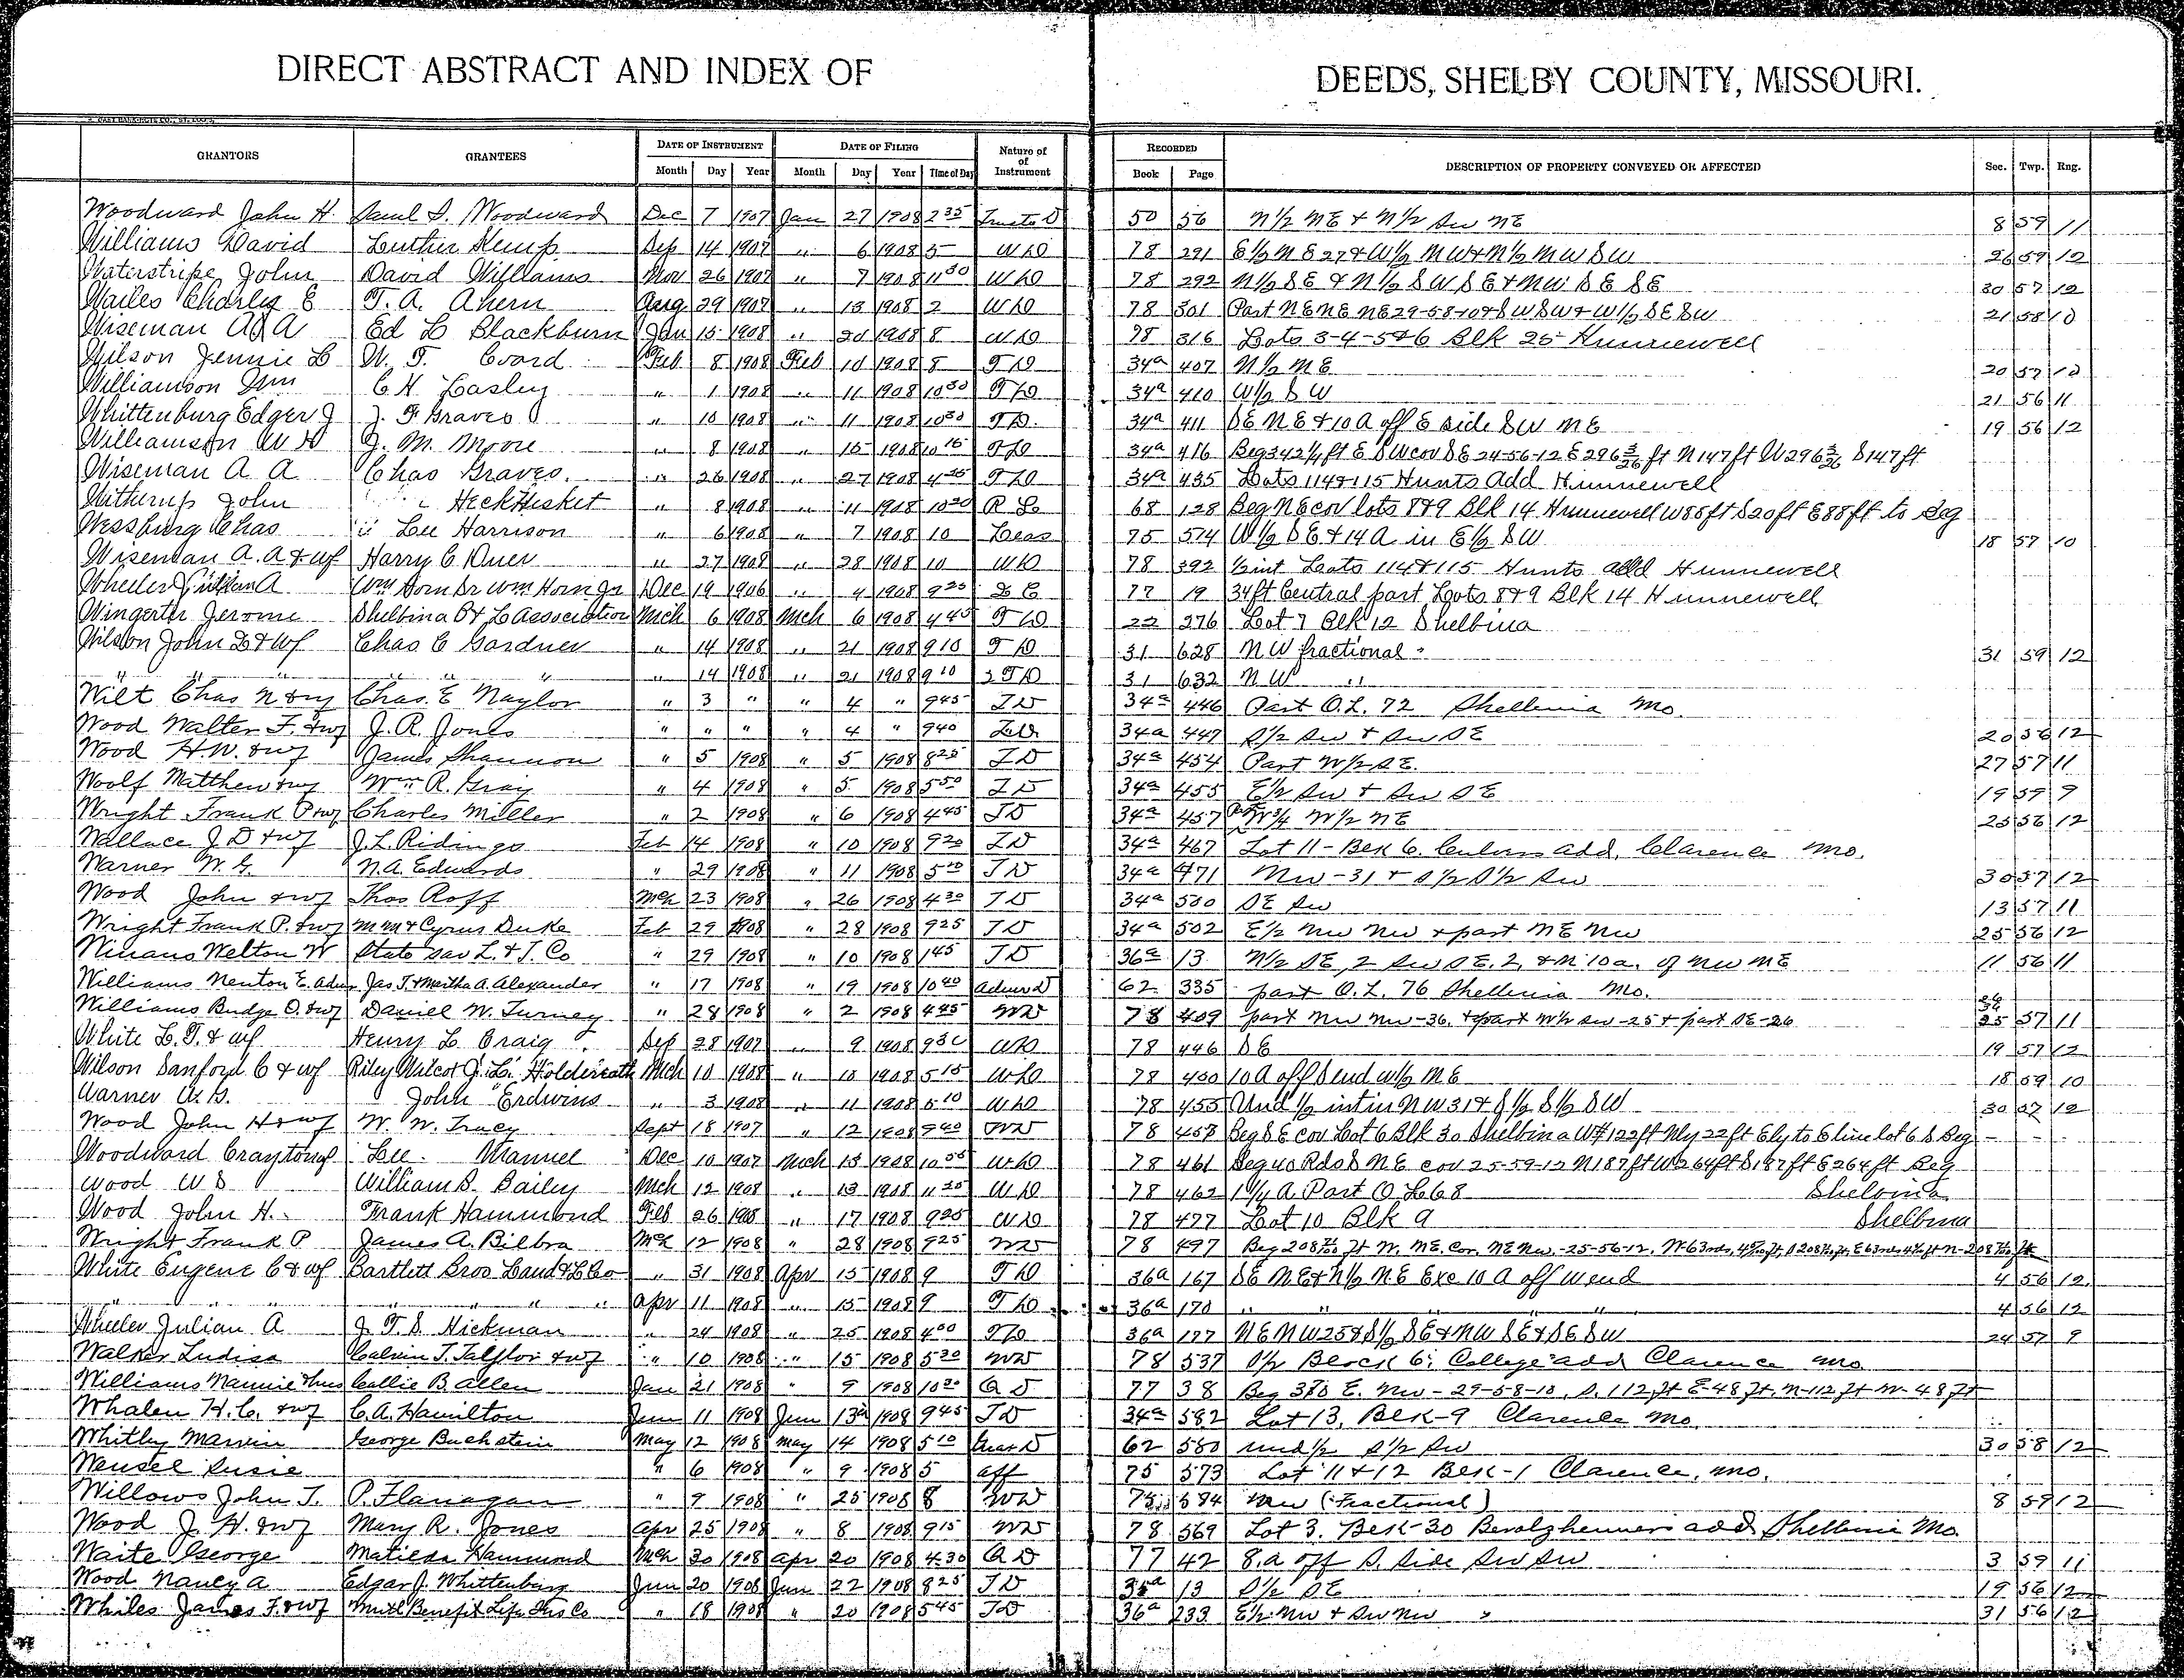 DIRECT ABSTRACT AND INDEX OF DEEDS, SHELBY COUNTY, MISSOURI.
GRANTORS GRANTEES DATE OF INSTRUMENT DATE OF FILING Nature of of Instrument RECORDED DESCRIPTION OF PROPERTY CONVEYED OR AFFECTED Sec. Twp. Rng.
Month Day Year Month Day Year Time of Day Book Page
Woodward John H. Saml S. Woodward Dec 7 1907 Jan 27 1908 2 35 Truste D 50 56 N 1/2 NE & N 1/2 SW NE 8 59 11
Williams David Luther Kemp Sep 14 1907 " 6 1908 5 WD 78 291 E 1/2 NE 27 & W 1/2 NW & N 1/2 NW SW 26 59 12
Waterstripe John David Williams Nov 26 1907 " 7 1908 11 30 WD 78 292 N 1/2 SE & N 1/2 SW SE & NW SE SE 30 57 12
Wailes Charles E T. A. Ahern Aug 29 1907 " 13 1908 2 WD 78 301 Part NE NE NE 29-58-10 & SW SW & W 1/2 SE SW 21 58 10
Wiseman A A Ed L Blackburn Jan 15 1908 " 20 1908 8 WD 78 316 Lots 3-4-5 & 6 Blk 25 Hunnewell
Wilson Jennie L W. T. Coard Feb 8 1908 Feb 10 1908 8 TD 34a 407 N 1/2 NE 20 57 12
Williamson Wm C H Lasley " 1 1908 " 11 1908 10 30 TD 34a 410 W 1/2 SW 21 56 11
Whittenburg Edger J J. F Graves " 10 1908 " 11 1908 10 30 TD. 34a 411 SE NE & 10 A off E side SW NE 19 56 12
Williamson W D J. M. Moore " 8 1908 " 15 1908 10 15 TD 34a 416 Beg 342 1/4 ft E SW cor SE 24-56-12 E 296 3/26 ft N 147 ft W 296 3/26 S 147 ft
Wiseman A A Chas Graves. " 26 1908 " 27 1908 4 25 TD 34a 435 Lots 114 & 115 Hunts Add Hunnewell
Witherup John " Heck Hisket " 8 1908 " 11 1908 10 20 68 128 Beg NE cor lots 8 & 9 Blk 14 Hunnewell W 88 ft S 20 ft E 88 ft to Beg
Wessburg Chas " Lee Harrison " 6 1908 " 7 1908 10 Leas 75 574 W 1/2 SE & 14 A in E 1/2 SW 18 57 10
Wiseman A. A & wf Harry C Duer " 27 1908 " 28 1908 10 WD 78 392 Lots 114 & 115 Hunts add Hunnewell
Wheeler A Wm Horn Sr Wm Horn Jr Dec 19 1906 " 4 1908 9 25 77 19 34 ft Central part Lots 8 & 9 Blk 14 Hunnewell
Wingerter Jerome Shelbina B & L Association Mch 6 1908 Mch 6 1908 4 45 TD 22 276 Lot 7 Blk 12 Shelbina
Wilson John & wf Chas C Gardner " 14 1908 " 21 1908 9 10 TD 31 628 NW fractional 31 59 12
" " " " " " " 14 1908 " 21 1908 9 10 2 TD 31 632 NW "
Wilt Chas N & wf Chas. E Naylor " 3 " " 4 " 9 45 TD 34a 446 Part O.L. 72 Shelbina Mo.
Wood Walter F. & wf J. R. Jones " " " " 4 " 9 40 TD 34a 447 S 1/2 SW & SW SE 20 56 12
Wood H.W. & wf James Shannon " 5 1908 " 5 1908 8 25 TD 34a 454 Part W 1/2 SE. 27 57 11
Woolf Matthew & wf Wm R. Gray " 4 1908 " 5 1908 5 50 TD 34a 455 E 1/2 SW & SW SE 19 59 9
Wright Frank P & wf Charles Miller " 2 1908 " 6 1908 4 45 TD 34a 457 W 3/4 W 1/2 NE 25 56 12
Wallace J. D & wf J. L. Ridings Feb 14 1908 " 10 1908 9 20 TD 34a 467 Lot 11 - Blk 6. Culvers add, Clarence Mo.
Warner W. G. N. A. Edwards " 29 1908 " 11 1908 5 10 TD 34a 471 NW-31 & S 1/2 S 1/2 SW 30 57 12
Wood John & wf Thos Roff Mch 23 1908 " 26 1908 4 30 TD 34a 500 SE SW 13 57 11
Wright Frank P. & wf M M & Cyrus Duke Feb 29 1908 " 28 1908 9 25 TD 34a 502 E 1/2 NW NW & part NE NW 25 56 12
Winans Welton W State Sav L. & T. Co " 29 1908 " 10 1908 1 45 TD 36a 13 N 1/2 SE, 2 SW SE. 2, & N 10 a. of NW NE 11 56 11
Williams Newton E. Admr Jas T. & Martha A. Alexander " 17 1908 " 19 1908 10 40 Admr D 62 335 part O.L. 76 Shelbina Mo.
Williams Budge O. & wf Daniel W. Turney " 28 1908 " 2 1908 4 45 WD 78 409 part NW NW-36. & part W 1/2 SW-25 & part SE-26 26 36 25 57 11
White L. T. & wf Henry L. Craig Sep 28 1907 " 9 1908 9 30 WD 78 446 SE 19 57 12
Wilson Sanford C & wf Riley Wilcox J. L. Holdereath Mch 10 1908 " 10 1908 5 15 WD 78 450 10 A off S end W 1/2 NE 18 59 10
Warner W. G. John Erdwins " 3 1908 " 11 1908 5 10 WD 78 455 Und 1/2 int in NW 31 & S 1/2 S 1/2 SW 30 57 12
Wood John H & wf W. W. Tracy Sept 18 1907 " 12 1908 9 40 WD 78 458 Beg SE cor Lot 6 Blk 30 Shelbina W 122 ft Nly 22 ft Ely to E line lot 6 S Beg - - -
Woodward Crayton & wf Lee Manuel Dec 10 1907 Mch 13 1908 10 55 WD 78 461 Beg 40 Rds S NE cor 25-59-12 N 187 ft W 264 ft S 187 ft E 264 ft Beg
Wood W S William S. Bailey Mch 12 1908 " 13 1908 11 25 WD 78 462 1 1/4 A Part O L 68 Shelbina
Wood John H. Frank Hammond Feb 26 1908 " 17 1908 9 25 WD 78 477 Lot 10 Blk 9 Shelbina
Wright Frank P James A. Bilbra Mch 12 1908 " 28 1908 9 25 WD 78 497 Beg 208 ft W. NE. Cor. NE NW.-25-56-12,
White Eugene C & wf Bartlett Bros Land & L Co " 31 1908 Apr 15 1908 9 TD 36a 167 SE NE & N 1/2 NE Exc 10 A off W end 4 56 12
" " " " " " Apr 11 1908 " 15 1908 9 TD 36a 170 " " " " 4 56 12
Wheeler Julian A J. T. S. Hickman " 24 1908 " 25 1908 4 00 TD 36a 177 NE NW 25 & S 1/2 SE & NW SE & SE SW 24 57 9
Walker Ludisa Calvin T. & wf " 10 1908 " 15 1908 5 30 WD 78 537 S 1/2 Block 6; College add Clarence Mo
Williams Mannie & hus Callie B. Allen Jan 21 1908 " 9 1908 10 20 QD 77 38 Beg 370 E. NW-29-58-10, S. 112 ft E-48 ft. N-112 ft W-48 ft
Whalen H. C. & wf C. A. Hamilton Jun 11 1908 Jun 13 1908 9 45 TD 34a 582 Lot 13, Blk-9 Clarence Mo.
Whitby Marvin George Buchstein May 12 1908 May 14 1908 5 10 Guar D 62 580 und 1/2 S 1/2 SW 30 58 12
Wensel Susie " 6 1908 " 9 1908 5 aff 75 573 Lot 11 & 12 Blk-1 Clarence, Mo.
Willows John T. P. Flanagan " 9 1908 " 25 1908 8 WD 75 594 NW (Fractional) 8 59 12
Wood J. H. & wf Mary R. Jones Apr 25 1908 " 8 1908 9 15 WD 78 569 Lot 3. Blk-30 Benolzheimers add Shelbina Mo.
Waite George Matilda Hammond Mch 30 1908 Apr 20 1908 4 30 QD 77 42 8.a off S. Side SW SW 3 59 11
Wood Nancy A Edgar J. Whittenburg Jun 20 1908 Jun 22 1908 8 25 TD 35a 13 S 1/2 SE 19 56 12
Whiles James F. & wf Mutl Benefit Life Ins Co " 18 1908 " 20 1908 5 45 TD 36a 233 E 1/2 NW & SW NW 31 56 12